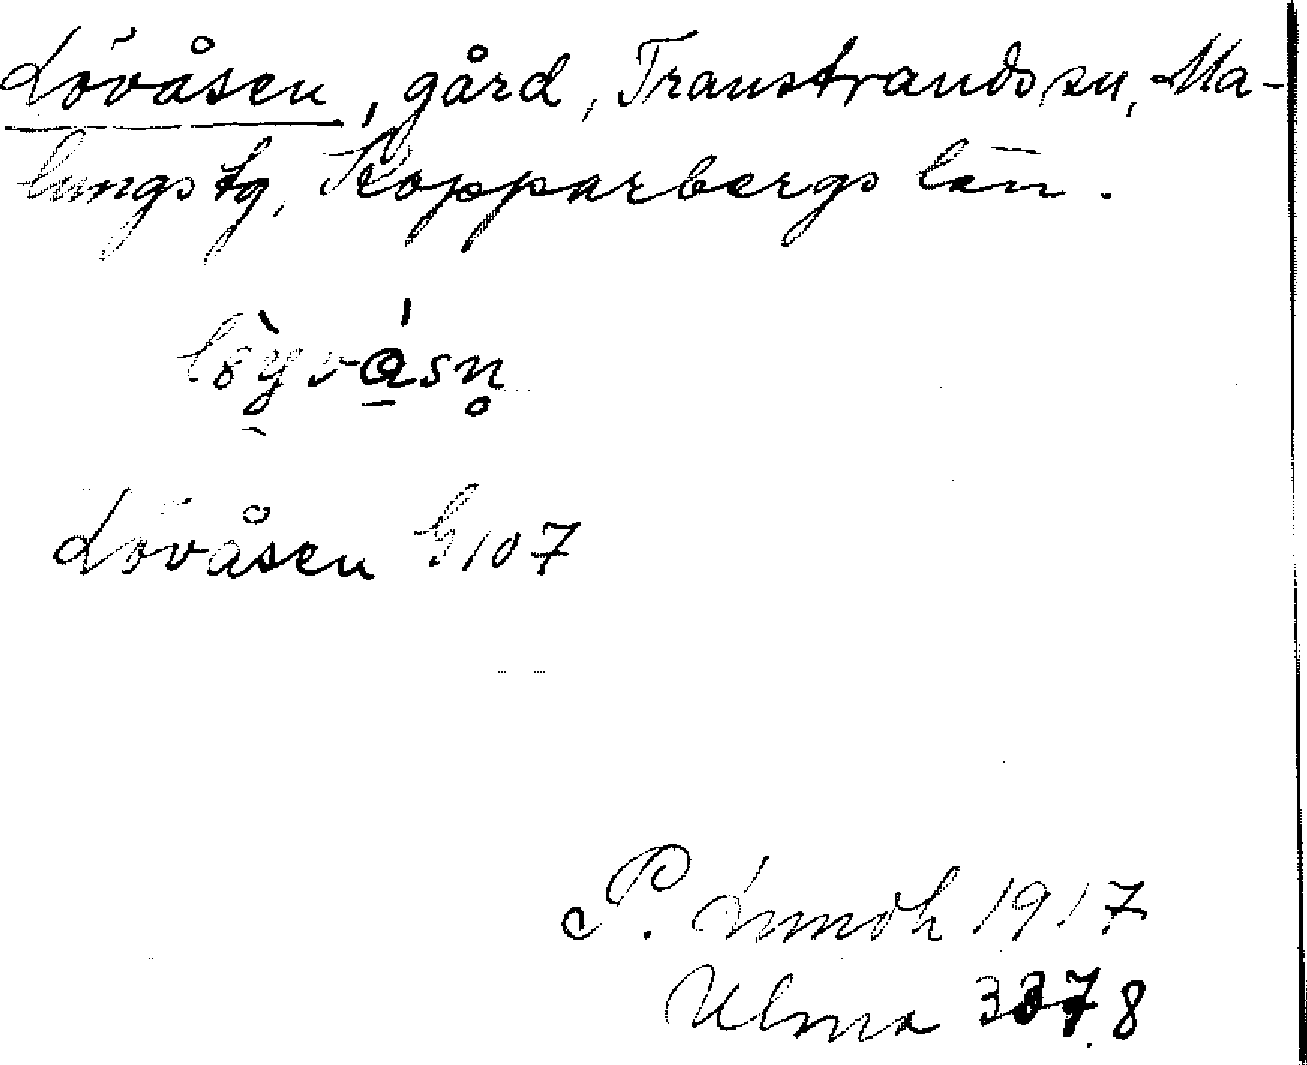 Lövåsen, gård, Transtrands sn, Ma-
lungs tg, Kopparbergs län.
Lövåsen G 107
P. 1917
Ulma 3378